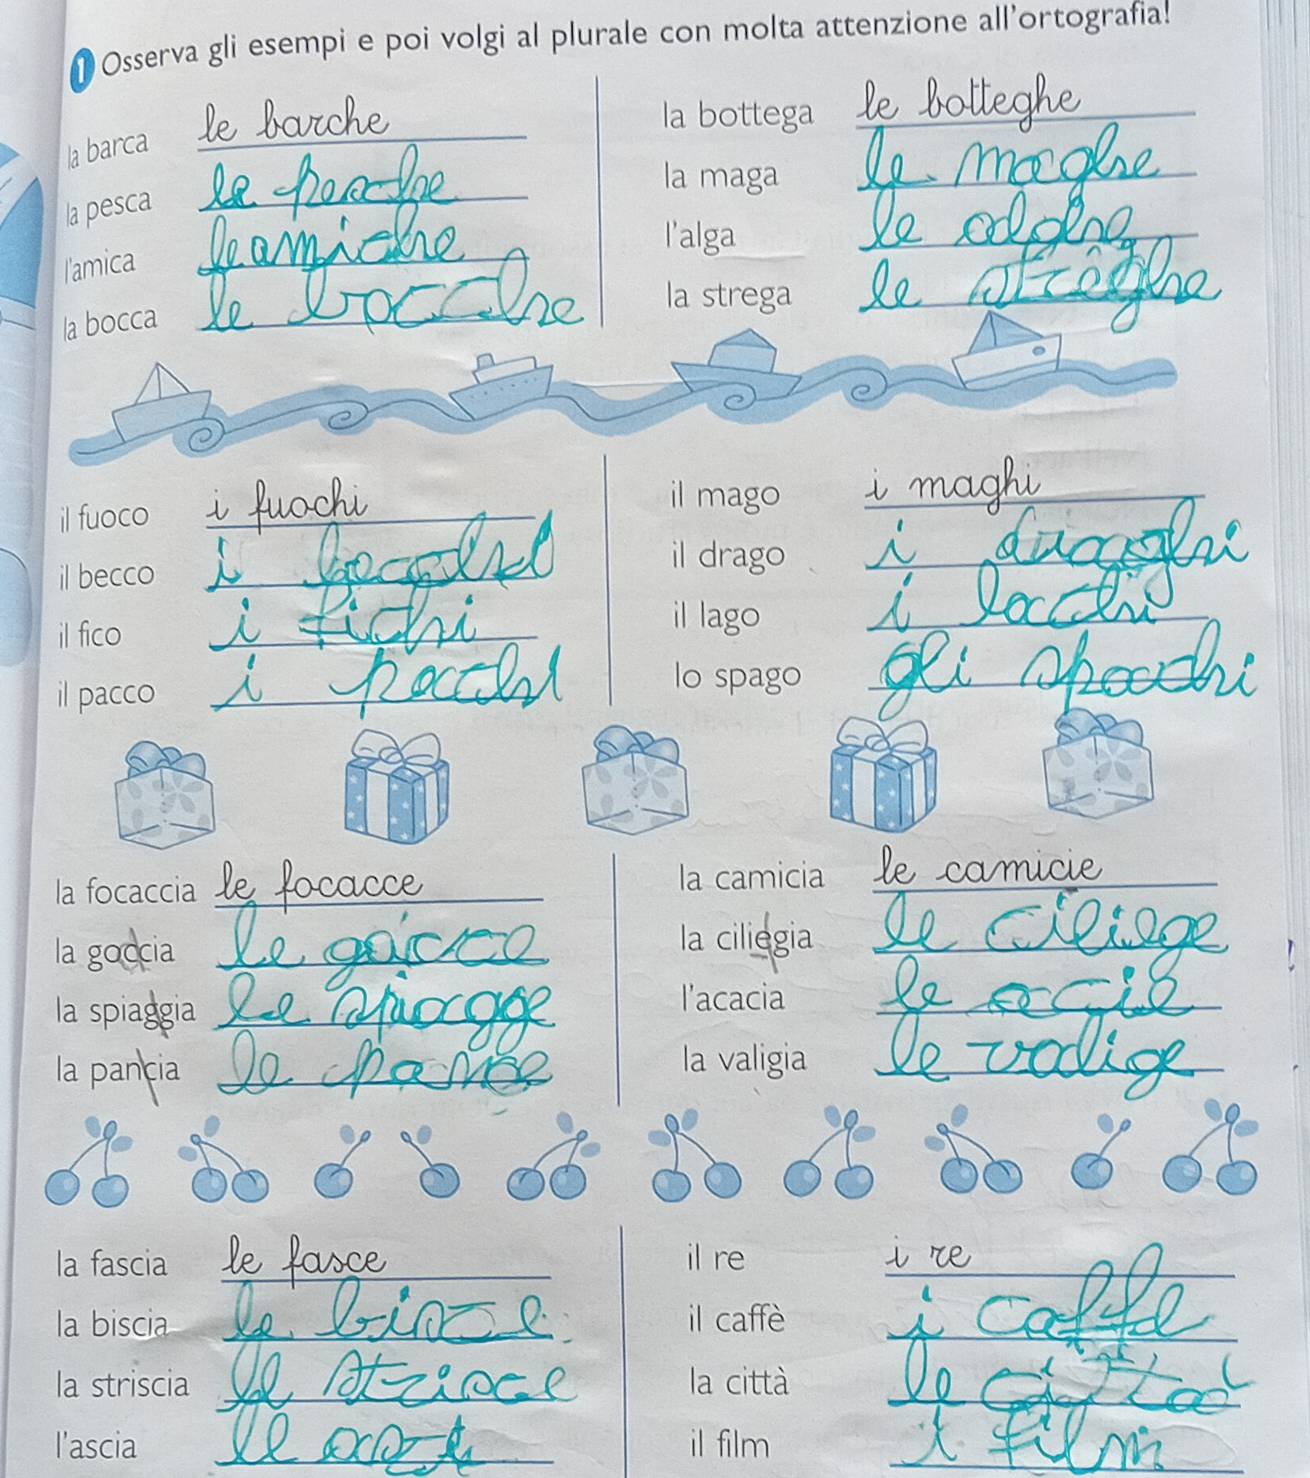 1 Osserva gli esempi e poi volgi al plurale con molta attenzione all'ortografia!
la barca le barche
la pesca le pesche
l'amica le amiche
la bocca le bocche
la bottega le botteghe
la maga le maghe
l'alga le
la strega le streghe
il fuoco i fuochi
il becco i
il fico i fichi
il pacco i pacchi
il mago i maghi
il drago i
il lago i lacchi
lo spago gli
la focaccia le focacce
la goccia le
la spiaggia le spiagge
la pancia le pance
la camicia le camicie
la ciliegia le ciliege
l'acacia le acie
la valigia le valige
la fascia le fasce
la biscia le bisce
la striscia le strisce
l'ascia le
il re i re
il caffè i caffe
la città le città
il film i film